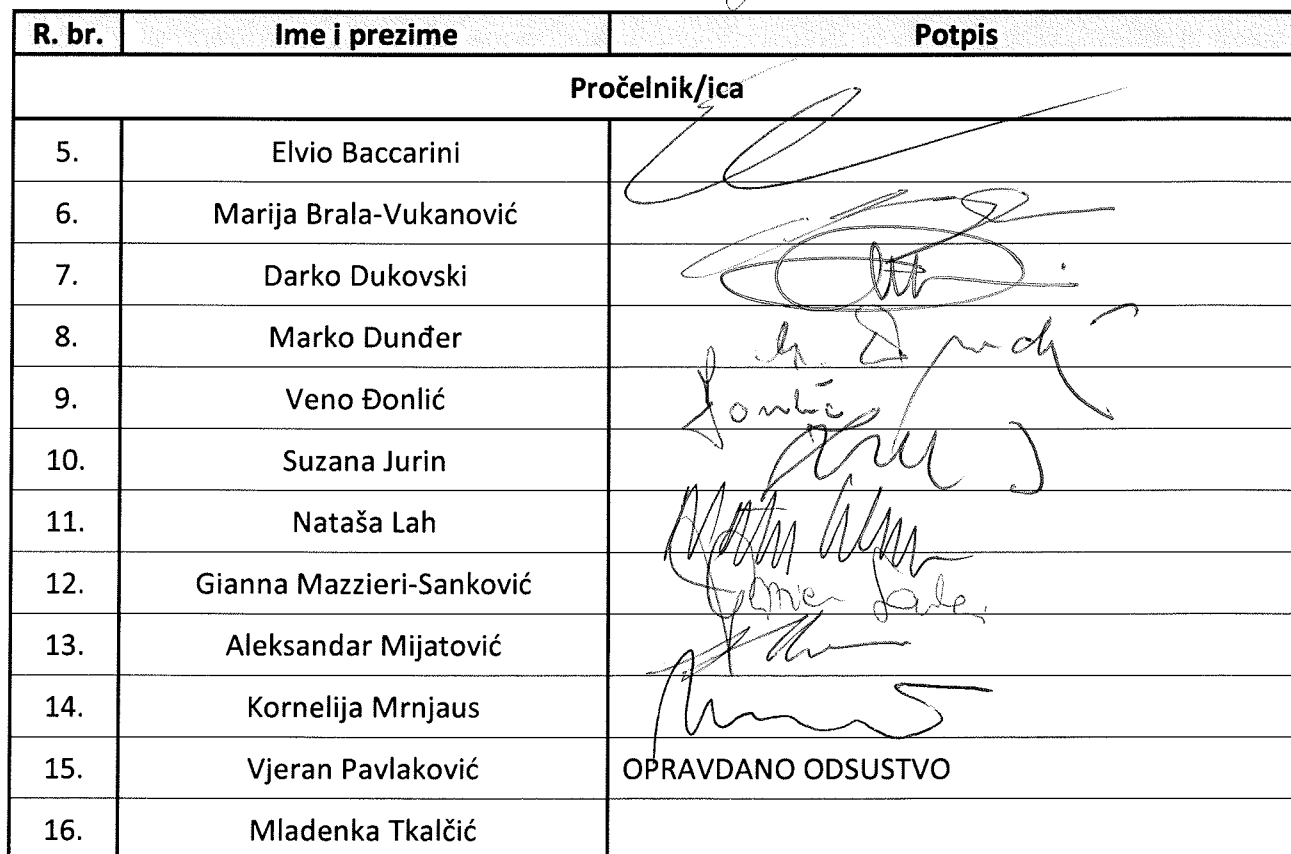 R. br. Ime i prezime Potpis
Pročelnik/ica
5. Elvio Baccarini
6. Marija Brala-Vukanović
7. Darko Dukovski
8. Marko Dunđer
9. Veno Đonlić
10. Suzana Jurin
11. Nataša Lah
12. Gianna Mazzieri-Sanković
13. Aleksandar Mijatović
14. Kornelija Mrnjaus
15. Vjeran Pavlaković OPRAVDANO ODSUSTVO
16. Mladenka Tkalčić